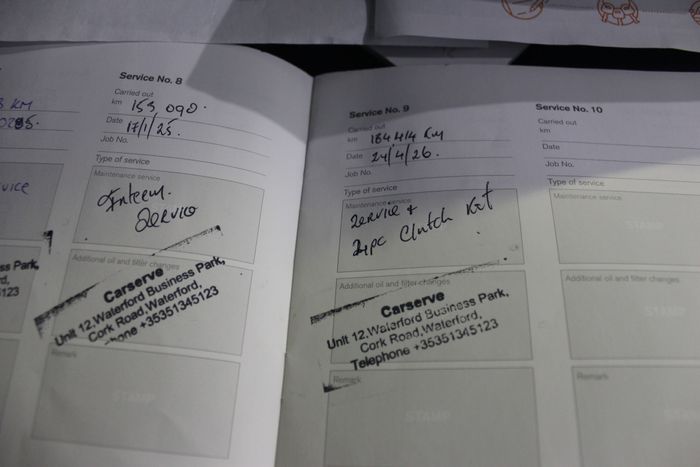 KM
Service No. 8
Carried out
km 159 090.
Date 17/1/25.
Job No.
Type of service
Maintenance service
Interim.
Service
Additional oil and filter changes
Carserve
Unit 12,Waterford Business Park,
Cork Road,Waterford,
phone +35351345123
Remark
STAMP
ss Park,
123
Service No. 9
Carried out
km 184 414 Km
Date 24/4/26.
Job No.
Type of service
Maintenance service
Service +
Clutch Kit
Additional oil and filter changes
Carserve
Unit 12,Waterford Business Park,
Cork Road,Waterford,
Telephone +35351345123
Remark
STAMP
Service No. 10
Carried out
km
Date
Job No.
Type of service
Maintenance service
STAMP
Additional oil and filter changes
STAMP
Remark
STAMP